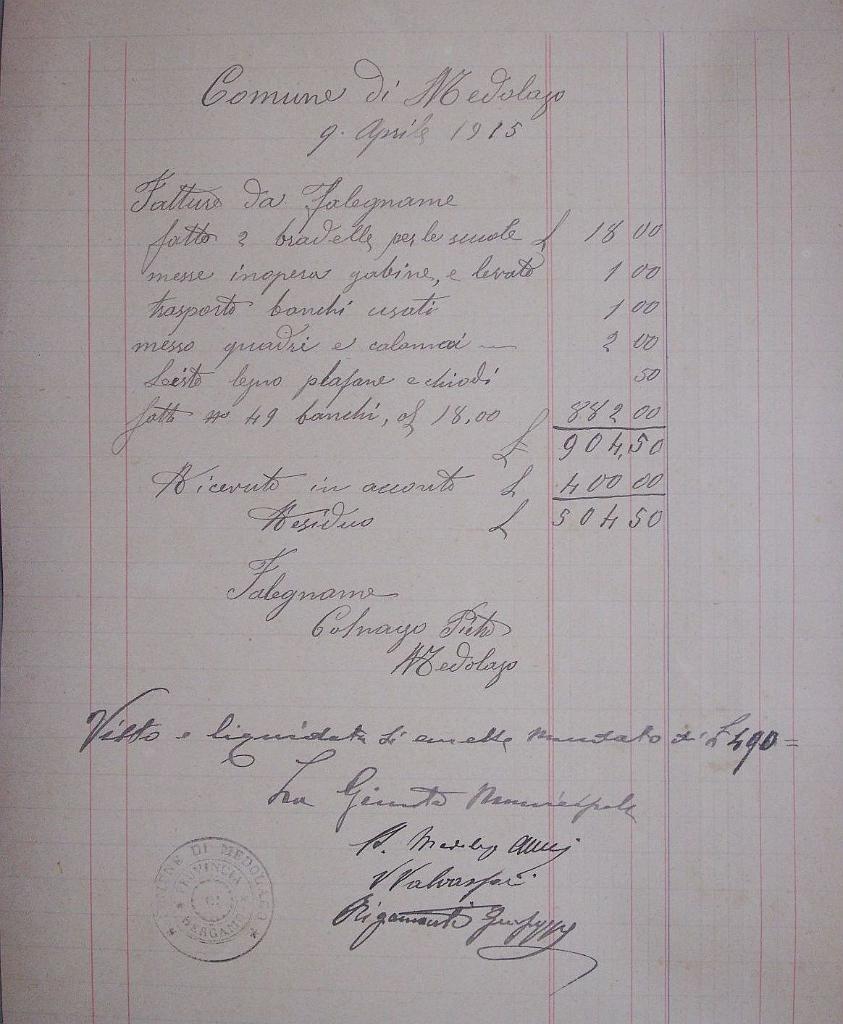 Comune di Medolago
9. Aprile 1915
Fatture da Falegname
fatto 2 bradelle, per le scuole £ 18 00
messe inopera gabine, e levato 1 00
trasporto banchi usati 1 00
messo quadri e calamai — 2 00
legno plafane e chiodi 50
fatto no 49 banchi, a £ 18,00 882 00
£ 904,50
Ricevuto in acconto £ 400 00
Residuo £ 504 50
Falegname
Colnago Pietro
Medolago
Visto e liquidata si emette mandato di £ 490 =
La Giunta Municipale
Medolago
Valvassori
Rigamonti Giuseppe
COMUNE DI MEDOLAGO
PROVINCIA DI BERGAMO